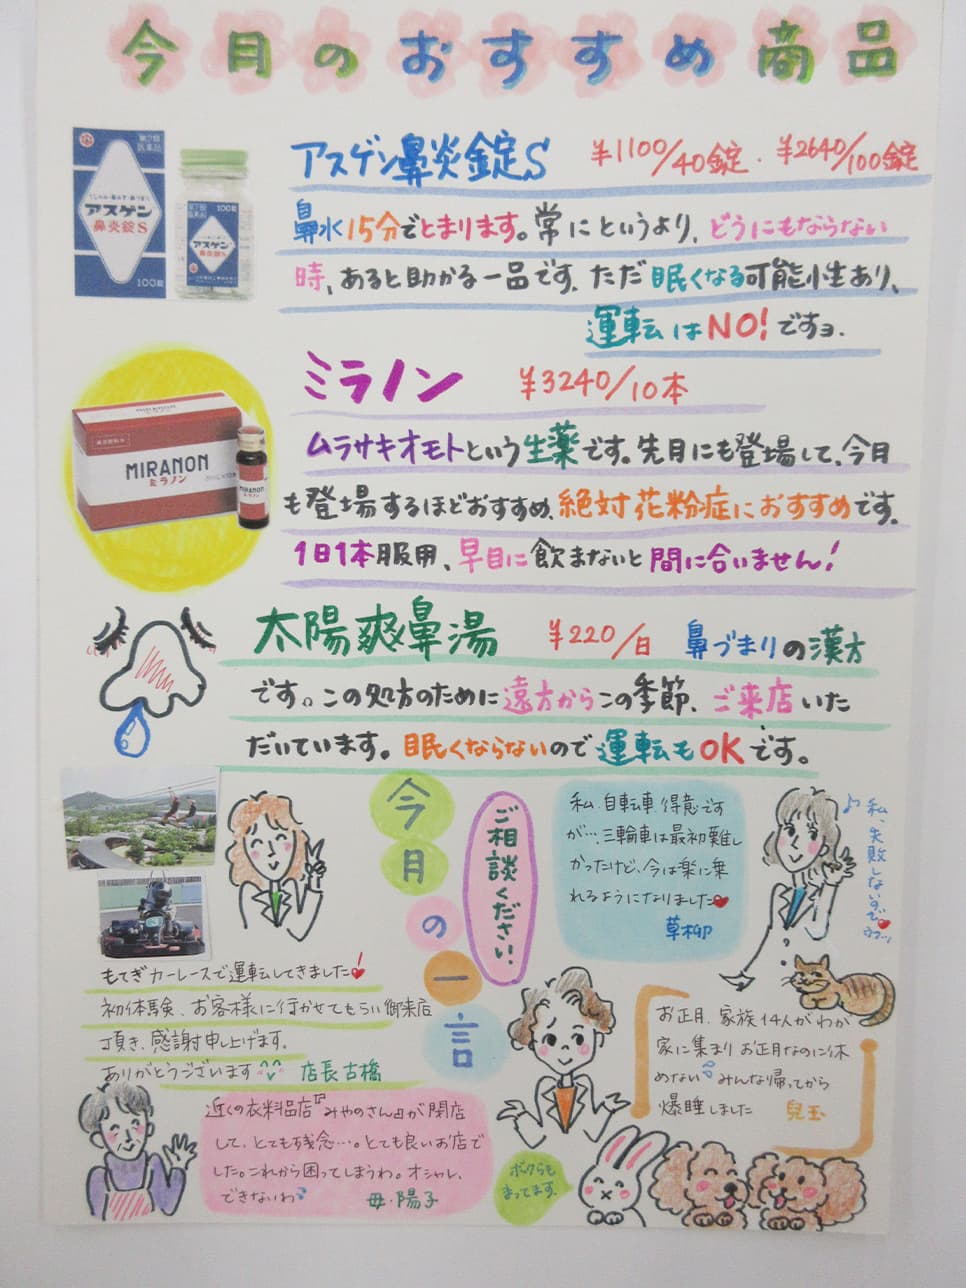 今月のおすすめ商品
第2類
医薬品
くしゃみ・鼻みず・鼻づまり
アスゲン
鼻炎錠S
100錠
100錠
アスゲン
鼻炎錠S
アスゲン鼻炎錠S ¥1100/40錠・¥2640/100錠
鼻水15分でとまります。常にというより、どうにもならない
時、あると助かる一品です。ただ眠くなる可能性あり、
運転はNO!ですョ.
MIRANON
ミラノン
MIRANON
ミラノン
ミラノン ¥3240/10本
ムラサキオモトという生薬です。先月にも登場して、今月
も登場するほどおすすめ、絶対花粉症におすすめです。
1日1本服用、早目に飲まないと間に合いません!
太陽爽鼻湯 ¥220/日 鼻づまりの漢方
です。この処方のために遠方からこの季節、ご来店いた
だいています。眠くならないので運転もOKです。
今月の一言
ご相談ください
もてぎカーレースで運転してきました
初体験、お客様に行かせてもらい御来店
頂き、感謝申し上げます。
ありがとうございます 店長古橋
私、自転車得意です
が…、三輪車は最初難し
かったけど、今は楽に乗
れるようになりました
草柳
♪私、失敗しないので
お正月、家族14人がわが
家に集まりお正月なのに休
めない みんな帰ってから
爆睡しました 兒玉
近くの衣料品店『みやのさん』が閉店
して、とても残念…。とても良いお店で
した。これから困ってしまうわ。オシャレ、
できないわ 母・陽子
ボクらも
まってます、